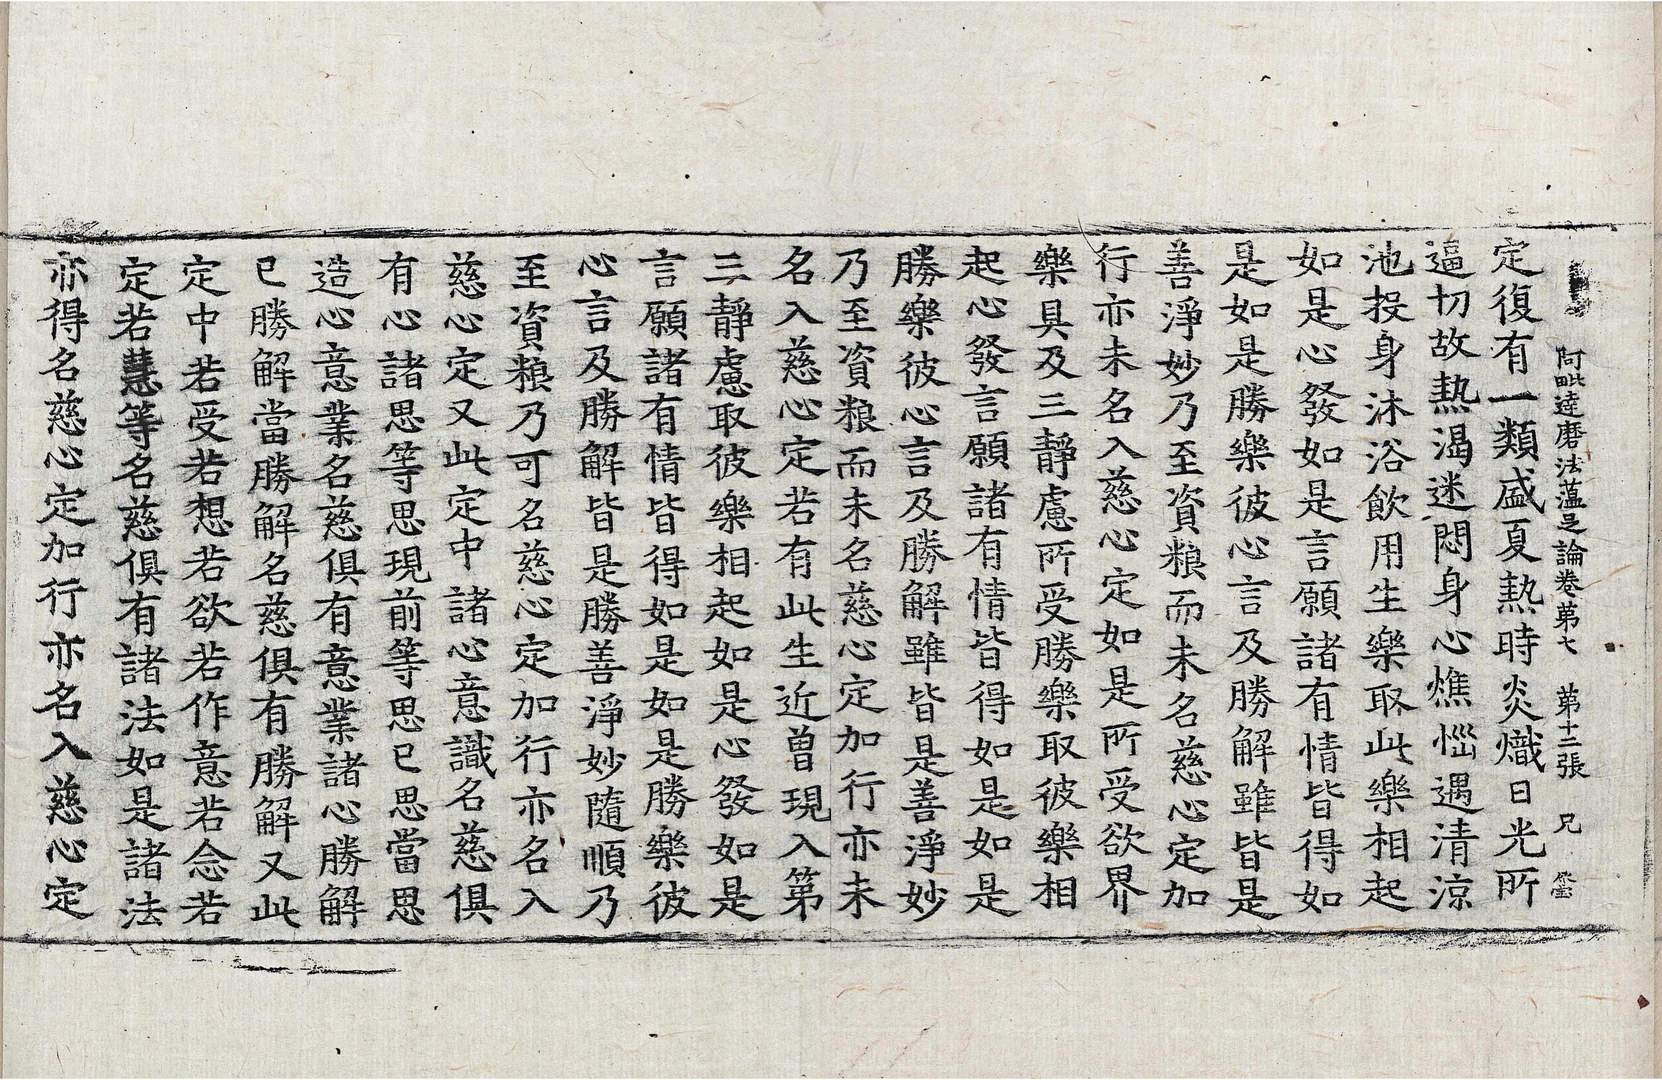 阿毗達磨法蘊足論卷第七 第十二張 兄
定復有一類盛夏熱時炎熾日光所
逼切故熱渴迷悶身心燋惱遇清涼
池投身沐浴飲用生樂取此樂相起
如是心發如是言願諸有情皆得如
是如是勝樂彼心言及勝解雖皆是
善淨妙乃至資粮而未名慈心定加
行亦未名入慈心定如是所受欲界
樂具及三靜慮所受勝樂取彼樂相
起心發言願諸有情皆得如是如是
勝樂彼心言及勝解雖皆是善淨妙
乃至資粮而未名慈心定加行亦未
名入慈心定若有此生近曾現入第
三靜慮取彼樂相起如是心發如是
言願諸有情皆得如是如是勝樂彼
心言及勝解皆是勝善淨妙隨順乃
至資粮乃可名慈心定加行亦名入
慈心定又此定中諸心意識名慈俱
有心諸思等思現前等思已思當思
造心意業名慈俱有意業諸心勝解
已勝解當勝解名慈俱有勝解又此
定中若受若想若欲若作意若念若
定若慧等名慈俱有諸法如是諸法
亦得名慈心定加行亦名入慈心定